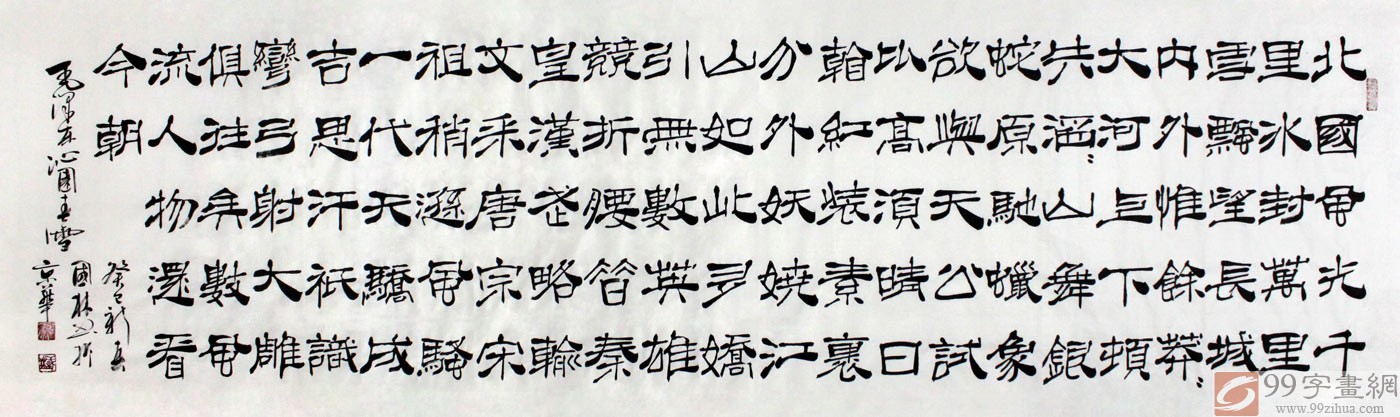 北國風光千
里冰封萬里
雪飄望長城
内外惟餘莽〻
大河上下頓
失滔〻山舞銀
蛇原馳蠟象
欲與天公試
比高須晴日
看紅裝素裹
分外妖嬈江
山如此多嬌
引無數英雄
競折腰惜秦
皇漢武略輸
文采唐宗宋
祖稍遜風騷
一代天驕成
吉思汗祇識
彎弓射大雕
俱往矣數風
流人物還看
今朝
毛澤東沁園春雪
癸巳新春
國林書於
京華
99字畫網
www.99zihua.com